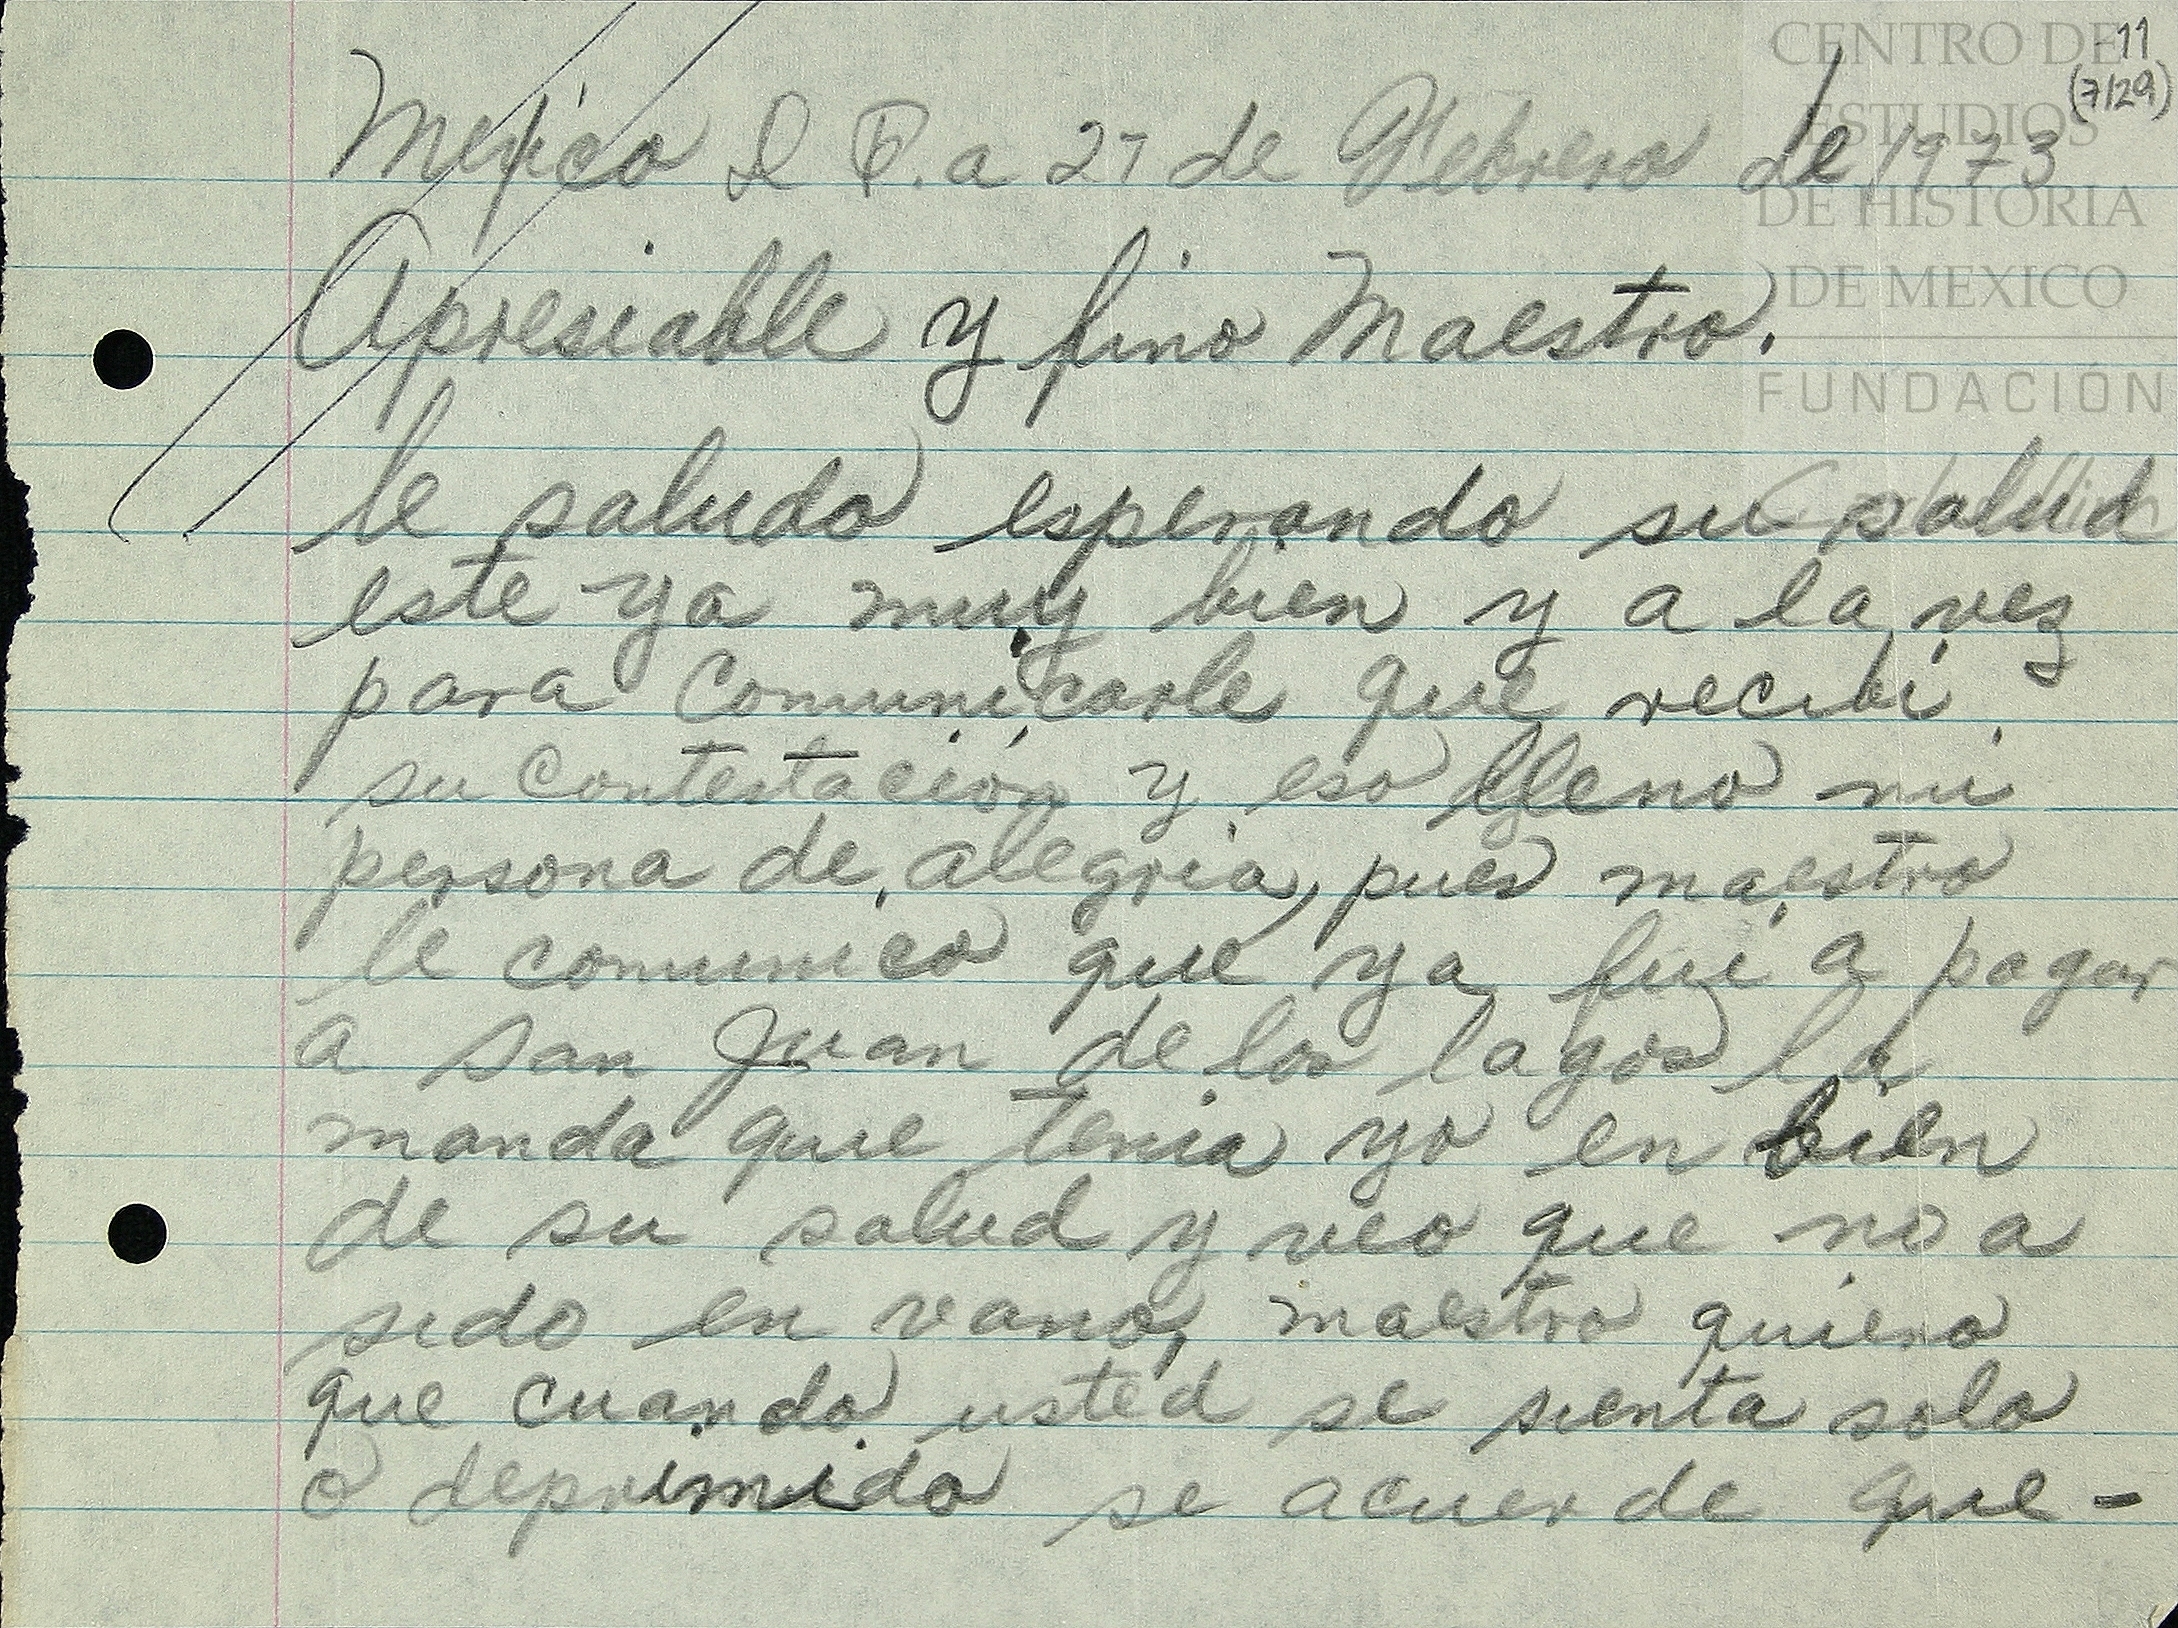 11
(7/29)
CENTRO DE
ESTUDIOS
DE HISTORIA
DE MEXICO
FUNDACIÓN
México D F. a 27 de Febrero de 1973
Apresiable y fino Maestro.
le saludo esperando su salud
este ya muy bien y a la vez
para comunicarle que recibi
su contestación y eso lleno mi
persona de alegria, pues maestro
le comunico que ya fui a pagar
a San Juan de los lagos la
manda que tenia yo en bien
de su salud y veo que no a
sido en vano, maestro quiero
que cuando usted se sienta solo
o deprimido se acuerde que -